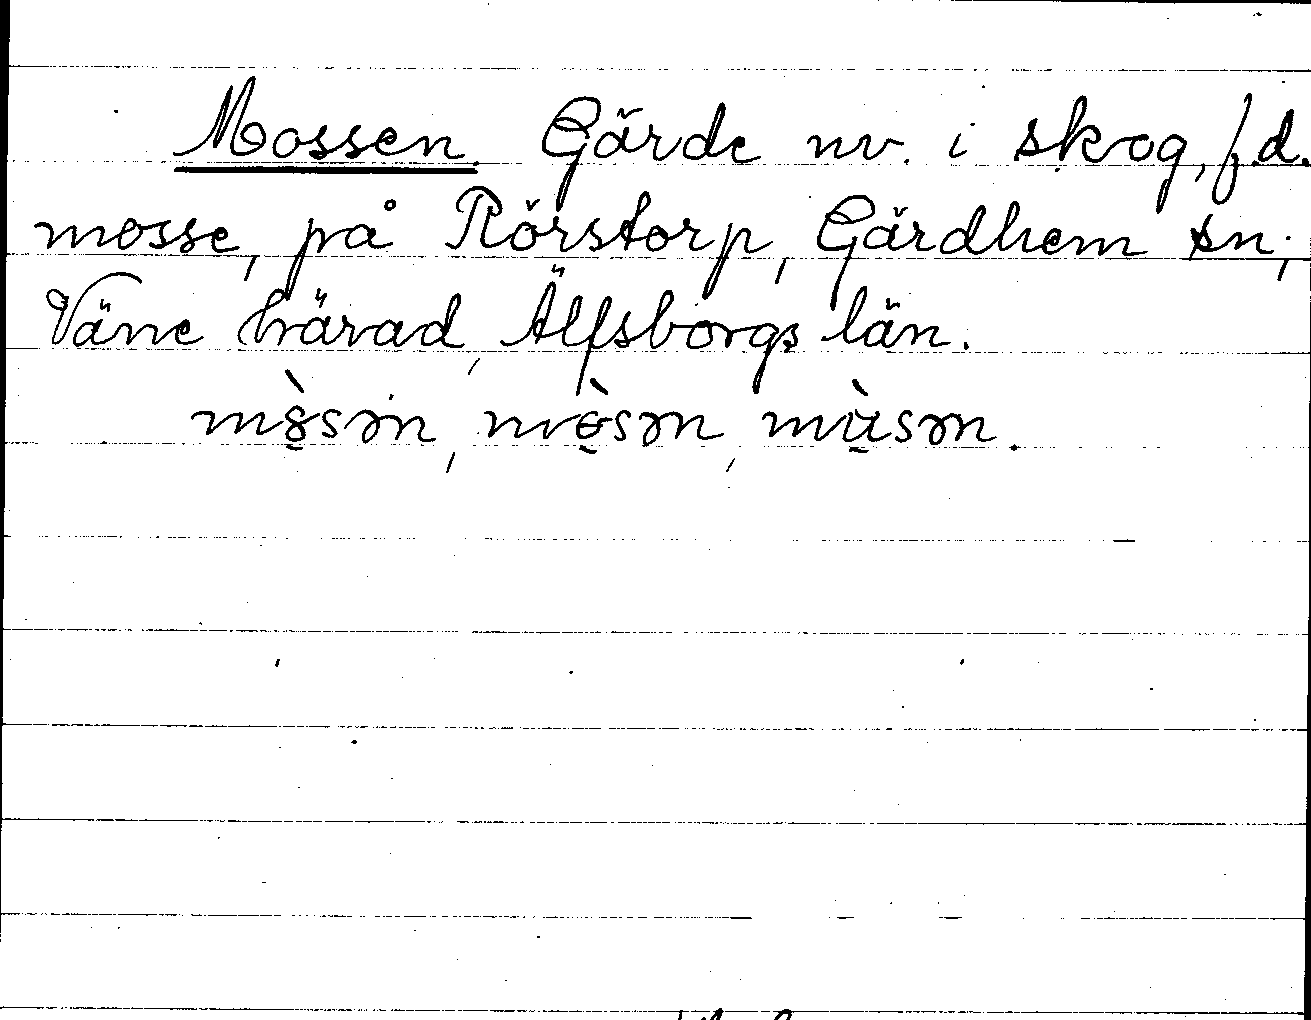 Mossen. Gärde nv. i skog, f.d.
mosse, på Rörstorp, Gärdhem sn;
Väne härad, Älfsborgs län.